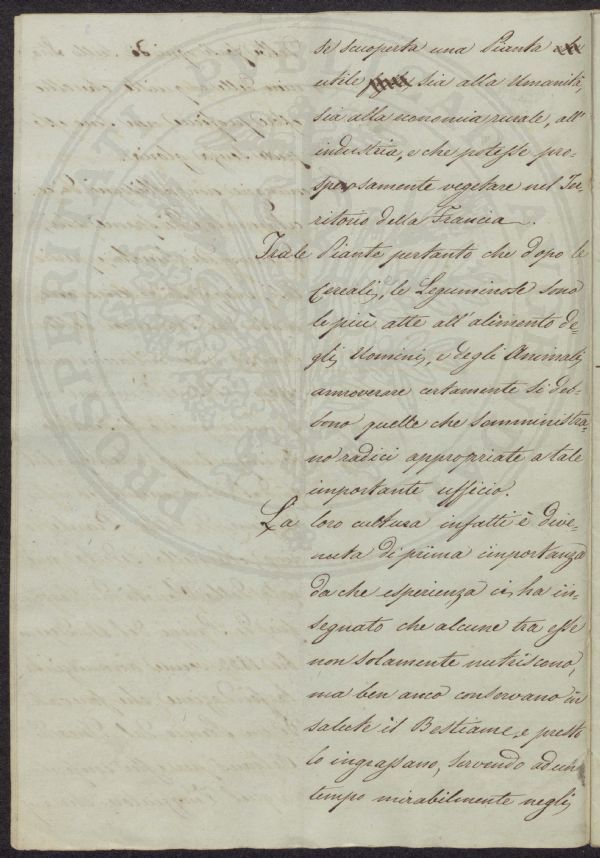 se scuoperta una Pianta
utile sia alla Umanità,
sia alla economia rurale, all'
industria, e che potesse pro-
sperosamente vegetare nel Ter-
ritorio della Francia.
Tra le Piante pertanto che dopo le
Cereali, le Leguminose sono
le più atte all'alimento de-
gli Uomini, e degli Animali,
annoverare certamente si deb-
bono quelle che somministra-
no radici appropriate a tale
importante ufficio.
La loro cultura infatti è dive-
nuta di prima importanza
da che esperienza ci ha in-
segnato che alcune tra esse
non solamente nutriscono,
ma ben anco conservano in
salute il Bestiame, e presto
lo ingrassano, servendo ad un
tempo mirabilmente negli
PROSPERITATI PUBLICAE